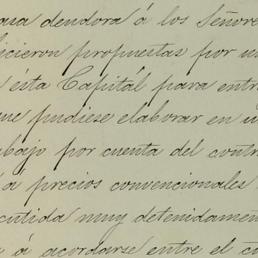 casa deudora á los Señore
hicieron propuestas por un
ésta Capital para entr
que pudiese elaborar en u
abajo por cuenta del contr
á precios convencionales
cutida muy detenidamen
á acordarse entre el co